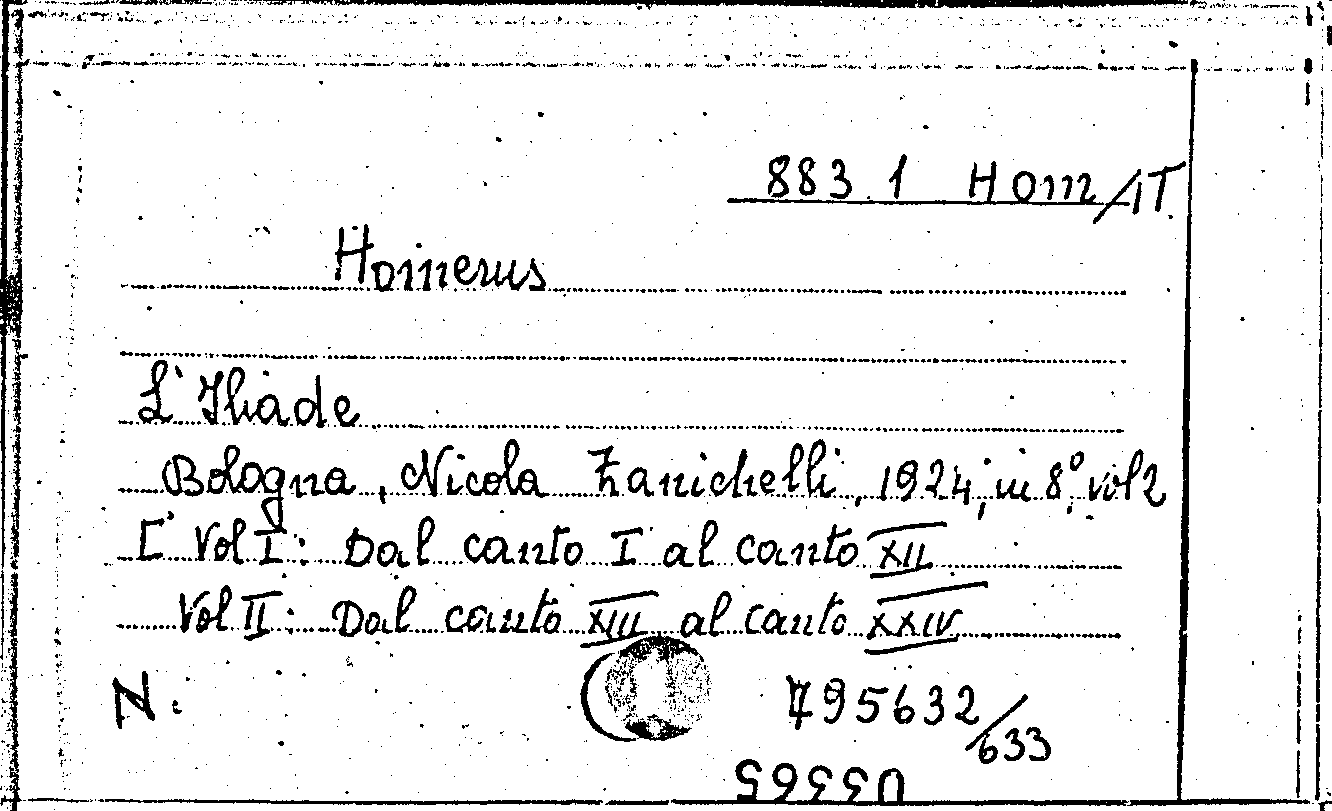 883.1 Hom/IT.
Homerus
L'Iliade
Bologna, Nicola Zanichelli, 1924, in 8°, vol 2
[ Vol I: Dal canto I al canto XII
Vol II: Dal canto XIII al canto XXIV
N. 795632/633